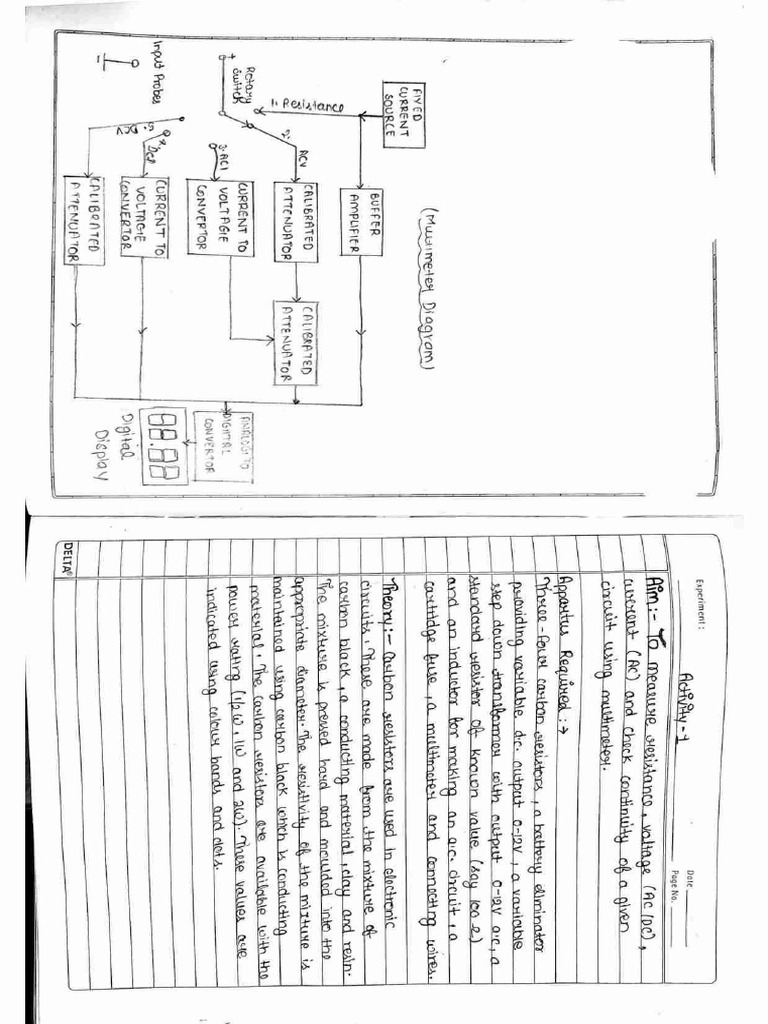 (Multimeter Diagram)
FIXED
CURRENT
SOURCE
BUFFER
AMPLIFIER
1. Resistance
2.
ACV
CALIBRATED
ATTENUATOR
CALIBRATED
ATTENUATOR
+
Rotary
Switch
3. AC1
CURRENT TO
VOLTAGE
CONVERTOR
ANALOG TO
DIGITAL
CONVERTOR
Input Probes
CURRENT TO
VOLTAGE
CONVERTOR
88.88
Digital
Display
5.
DCV
CALIBRATED
ATTENUATOR
Experiment :
Date
Page No.
Activity-1
Aim:- To measure resistance, voltage (AC/DC),
current (AC) and check continuity of a given
circuit using multimeter.
Appartus Required :→
Three-four carbon resistors, a battery eliminator
providing variable d.c. output 0-12V, a variable
step down transformer with output 0-12V a.c, a
standard resistor of known value (say 100 Ω)
and an inductor for making an a.c. circuit, a
cartridge fuse, a multimeter and connecting wires.
Theory:- Carbon resistors are used in electronic
circuits. These are made from the mixture of
carbon black, a conducting material, clay and resin.
The mixture is pressed hard and moulded into the
appropriate diameter. The resistivity of the mixture is
maintained using carbon black which is conducting
material. The carbon resistors are available with the
power rating (1/2 W, 1W and 2W). These values are
indicated using colour bands and dots.
DELTA®